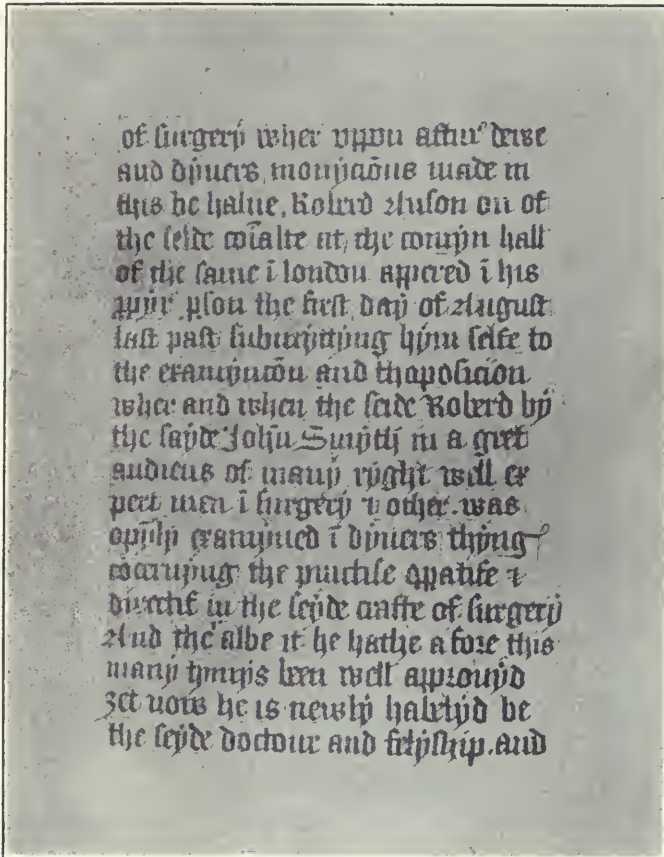 of surgerẏ wher vppon aftur dewe
and dẏuers monẏciōns made in
this be halue, Roberd Anson on of
the seide cōīalte at, the comẏn hall
of the same ī london appered ī his
ꝓpẏr ꝑson the first daẏ of August
last past submẏttẏng hẏm selfe to
the examẏnacōn and thaposicion
wher and when the seide Roberd bẏ
the saẏde John Smẏth in a gret
audiens of manẏ rẏght well ex
pert men ī surgerẏ ⁊ other. was
opῆlẏ examẏned ī dẏuers thẏng
cōcernẏng the practise oꝑatife ⁊
directif in the seẏde crafte of surgerẏ
And the albe it he hathe a fore this
manẏ tẏmẏs been well approuẏd
ȝet now he is newlẏ habelẏd be
the seẏde doctour and felẏship. and